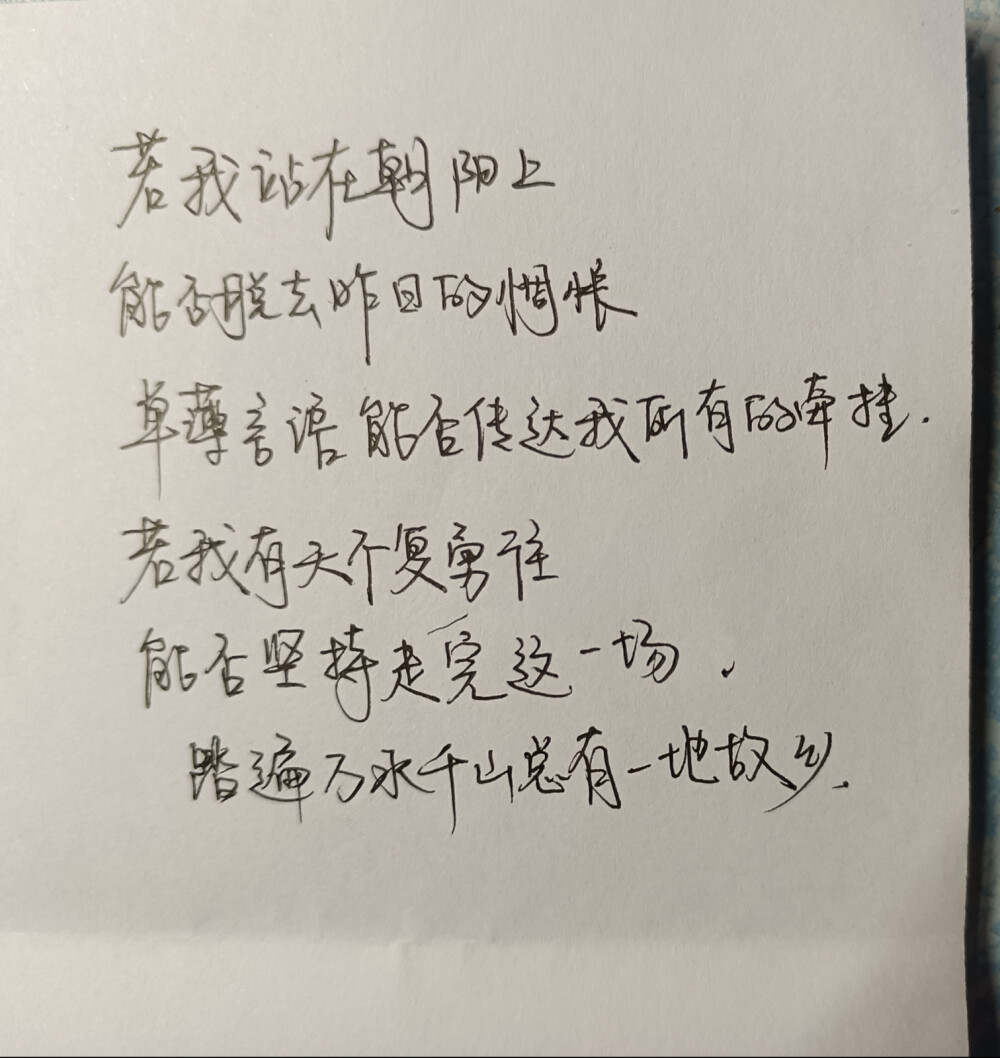 若我站在朝阳上
能否脱去昨日的惆怅
单薄言语能否传达我所有的牵挂.
若我有天不复勇往
能否坚持走完这一场.
踏遍万水千山总有一地故乡.